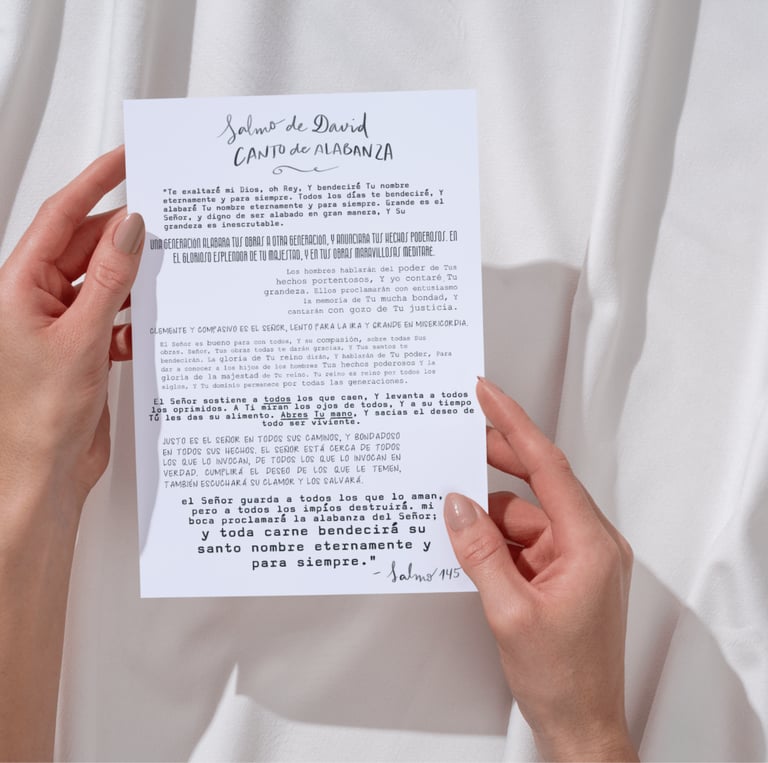 Salmo de David
CANTO de ALABANZA
"Te exaltaré mi Dios, oh Rey, Y bendeciré Tu nombre
eternamente y para siempre. Todos los días te bendeciré, Y
alabaré Tu nombre eternamente y para siempre. Grande es el
Señor, y digno de ser alabado en gran manera, Y Su
grandeza es inescrutable.
UNA GENERACIÓN ALABARÁ TUS OBRAS A OTRA GENERACIÓN, Y ANUNCIARÁ TUS HECHOS PODEROSOS. EN
EL GLORIOSO ESPLENDOR DE TU MAJESTAD, Y EN TUS OBRAS MARAVILLOSAS MEDITARÉ.
Los hombres hablarán del poder de Tus
hechos portentosos, Y yo contaré Tu
grandeza. Ellos proclamarán con entusiasmo
la memoria de Tu mucha bondad, Y
cantarán con gozo de Tu justicia.
CLEMENTE Y COMPASIVO ES EL SEÑOR, LENTO PARA LA IRA Y GRANDE EN MISERICORDIA.
El Señor es bueno para con todos, Y su compasión, sobre todas Sus
obras. Señor, Tus obras todas te darán gracias, Y Tus santos te
bendecirán. La gloria de Tu reino dirán, Y hablarán de Tu poder, Para
dar a conocer a los hijos de los hombres Tus hechos poderosos Y la
gloria de la majestad de Tu reino. Tu reino es reino por todos los
siglos, Y Tu dominio permanece por todas las generaciones.
El Señor sostiene a todos los que caen, Y levanta a todos
los oprimidos. A Ti miran los ojos de todos, Y a su tiempo
Tú les das su alimento. Abres Tu mano, Y sacias el deseo de
todo ser viviente.
JUSTO ES EL SEÑOR EN TODOS SUS CAMINOS, Y BONDADOSO
EN TODOS SUS HECHOS. EL SEÑOR ESTÁ CERCA DE TODOS
LOS QUE LO INVOCAN, DE TODOS LOS QUE LO INVOCAN EN
VERDAD. CUMPLIRÁ EL DESEO DE LOS QUE LE TEMEN,
TAMBIÉN ESCUCHARÁ SU CLAMOR Y LOS SALVARÁ.
el Señor guarda a todos los que lo aman,
pero a todos los impíos destruirá. mi
boca proclamará la alabanza del Señor;
y toda carne bendecirá su
santo nombre eternamente y
para siempre."
- Salmo 145